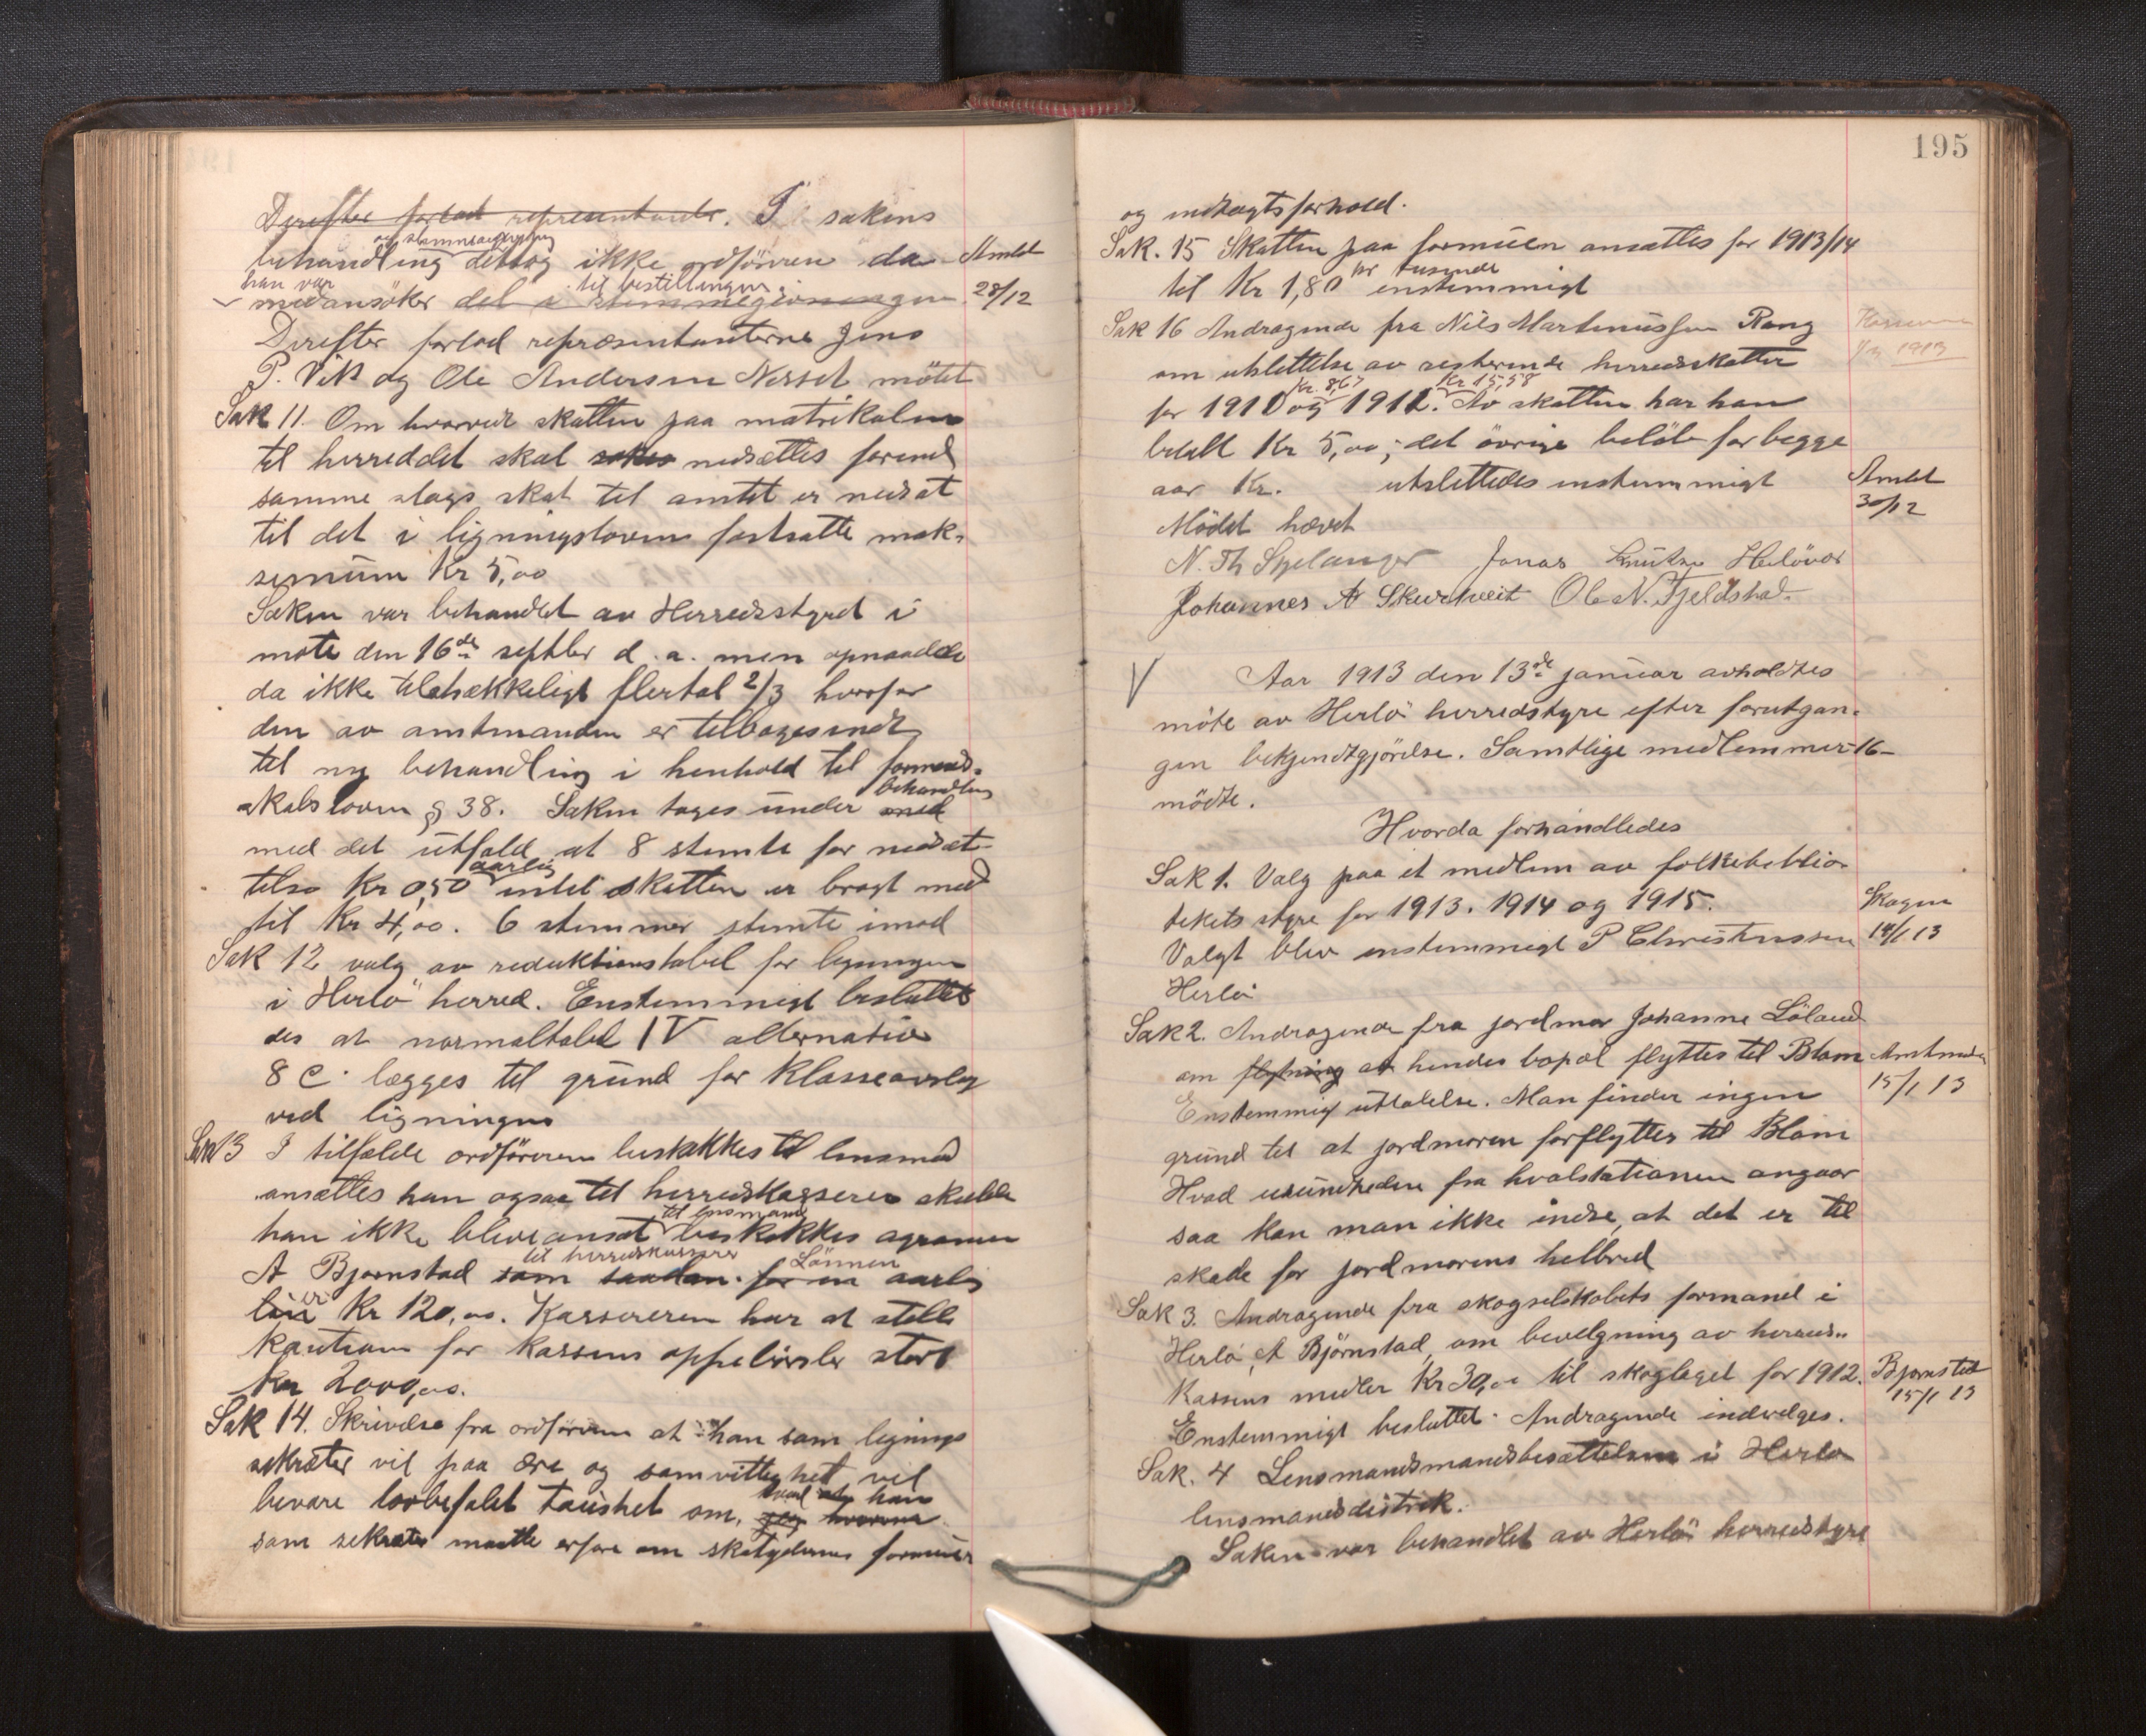 Derefter forlod repræsentander. I sakens
og stemmegivning
behandling deltog ikke ordföreren da
Amtet
han var til bestillingen.
medansöker del i stemmegivningen
28/12
Derefter forlod repræsentanterne Jens
P. Vik og Ole Andersen Nesset mötet
Sak 11. Om hvorvidt skatten paa matrikulen
til herreddet skal nedsættes forend
samme slags skat til amtet er nedsat
til det i ligningsloven fastsatte mak-
simum Kr 5,00
Saken var behandlet av Herredsstyret i
möte den 16de septbr d. a. men opnaadde
da ikke tilstrækkeligt flertal 2/3 hvorfor
den av amtmanden er tilbagesendt
til ny behandling i henhold til formand-
behandling
skabsloven § 38. Saken tages under med
med det utfald at 8 stemte for nedsæt-
aarlig
telse Kr 0,50 intil skatten er bragt ned
til Kr 4,00. 6 stemmer stemte imod
Sak 12 valg av reduktionstabel for ligningen
i Herlö herred. Enstemmigt beslutte-
des at normaltabel IV alternativ
8 C. lægges til grund for Klasseavslag
ved ligningen
Sak 13 I tilfælde ordföreren beskikkes til lensmand
ansættes han ogsaa til herredskasserer skulde
til lensmand
han ikke bli ansat beskikkes agronom
til herredskasserer Lönnen
A Bjørnstad som saadan. for en aarlig
er
lön Kr 120,00. Kassereren har at stille
Kaution for kassens oppebörsler stort
Kr 2000,00.
Sak 14. Skrivelse fra ordföreren at han som lignings
sekretær vil paa ære og samvittighet vil
hvad han
bevare lovbefalet taushet om, jeg
som sekretær maatte erfare om skatydernes formues
195
og indtægtsforhold.
Sak. 15 Skatten paa formuen ansættes for 1913/14
pr tusende
til Kr 1,80 enstemmigt
Sak 16 Andragende fra Nils Martinussen Rong
Kasserer
om utslettelse av resterende herredsskatter
1913
Kr. 8,67 Kr 15,58
for 1910 og 1911. Av skatten har han
betalt Kr 5,00; det övrige belöb for begge
aar Kr. utslettedes enstemmigt
Amtet
30/12
Mödet hævet
N. Th Sjelanger Jonas Knutsen Herlöver
Johannes A Skurtveit Ole N. Fjeldstad.
V Aar 1913 den 13de januar avholdtes
möte av Herlö herredstyre efter forutgan-
gen bekjendtgjörelse. Samtlige medlemmer -16-
mödte.
Hvorda forhandledes
Sak 1. Valg paa et medlem av folkebiblio-
tekets styre for 1913. 1914 og 1915.
Skogen
Valgt blev enstemmigt P Christensen
14/1 13
Herlö
Sak 2. Andragende fra jordmor Johanne Löland
om flytning at hendes bopæl flyttes til Blom
Amtmd
15/1 13
Enstemmig uttalelse. Man finder ingen
grund til at jordmoren forflyttes til Blom
Hvad usundheden fra hvalstationen angaar
saa kan man ikke indse, at det er til
skade for jordmorens helbred
Sak 3. Andragende fra skogselskabets formand i
Herlö, A Björnstad, om bevilgning av herreds-
Kassens midler Kr 30,00 til skoglaget for 1912.
Bjørnstad
15/1 13
Enstemmigt besluttet. Andragende indvilges.
Sak. 4 Lensmandsmandsbesættelsen i Herlö
lensmandsdistrik.
Saken var behandlet av Herlö herredstyre